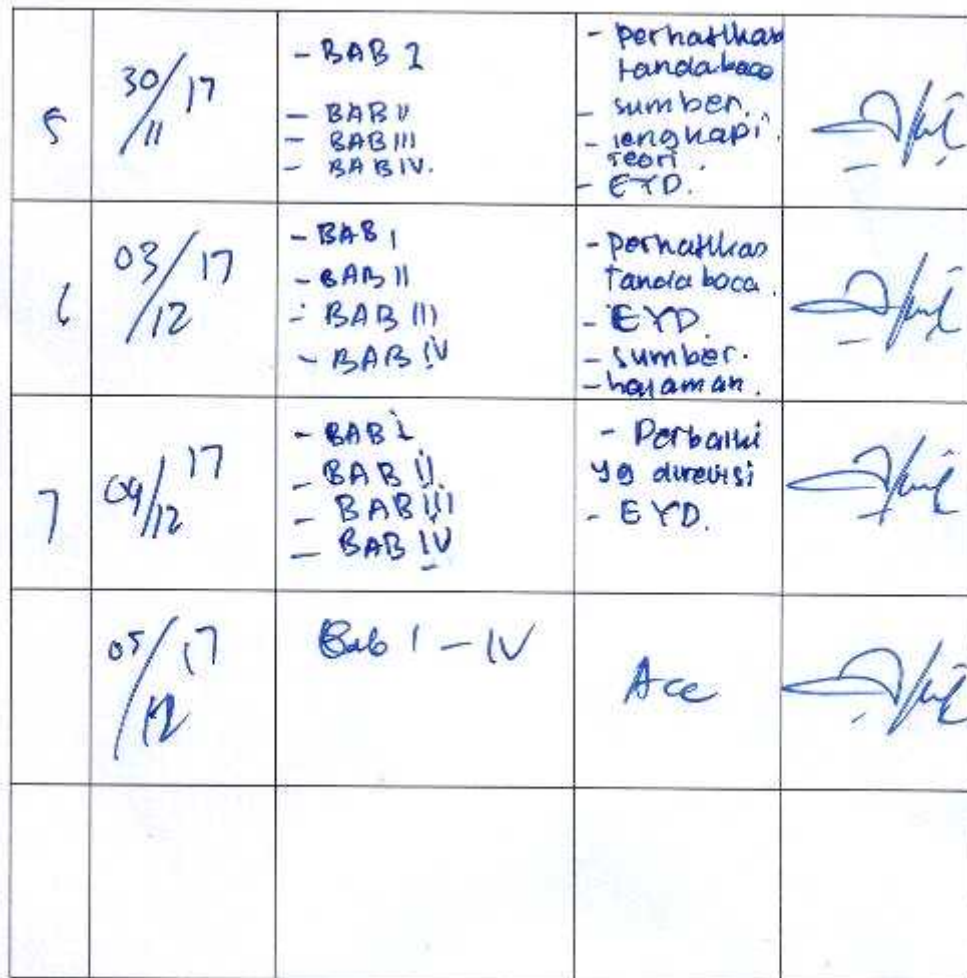 5
30/11 17
- BAB I
- BAB II
- BAB III
- BAB IV.
- perhatikan
tanda baca
- sumber.
- lengkapi
teori.
- EYD.
6
03/12 17
- BAB I
- BAB II
- BAB III
- BAB IV
- perhatikan
tanda baca.
- EYD.
- sumber.
- halaman.
7
04/12 17
- BAB I
- BAB II
- BAB III
- BAB IV
- Perbaiki
yg direvisi
- EYD.
05/12 17
Bab I - IV
Acc